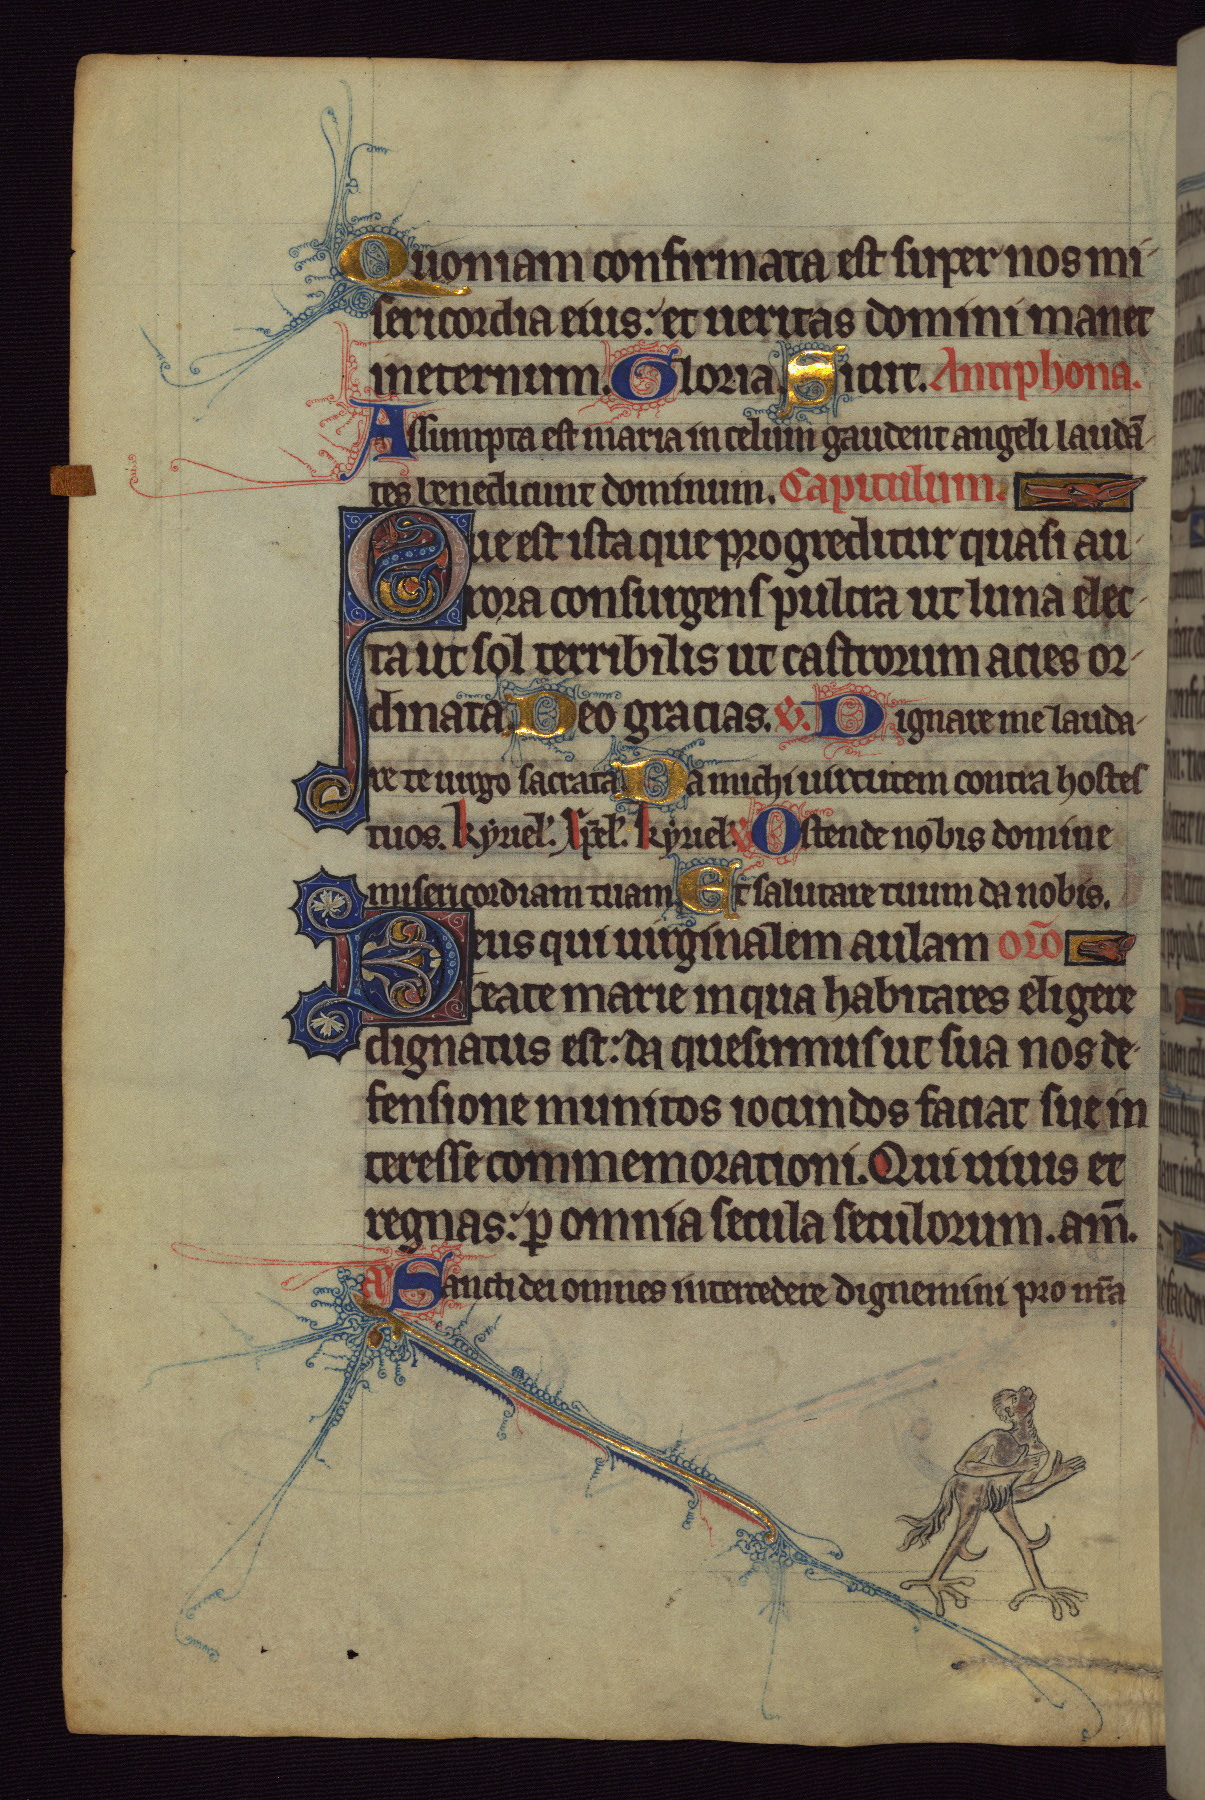 Quoniam confirmata est super nos mi-
sericordia eius: et ueritas domini manet
ineternum. Gloria. Sicut. Antiphona.
Assumpta est maria in celum gaudent angeli laudā-
tes benedicunt dominum. Capitulum.
Que est ista que progreditur quasi au-
rora consurgens pulcra ut luna elec-
ta ut sol terribilis ut castrorum acies or-
dinata. Deo gracias. V. Dignare me lauda-
re te uirgo sacrata. Da michi uirtutem contra hostes
tuos. kyriel'. xp̄el'. kyriel'. V. Ostende nobis domine
misericordiam tuam. Et salutare tuum da nobis.
Deus qui uirginalem aulam orō
beate marie in qua habitares eligere
dignatus est: da quesumus ut sua nos de-
fensione munitos iocundos faciat sue in
teresse commemorationi. Qui uiuis et
regnas: p̱ omnia secula seculorum. am̄.
a' Sancti dei omnes intercedere dignemini pro nr̄a